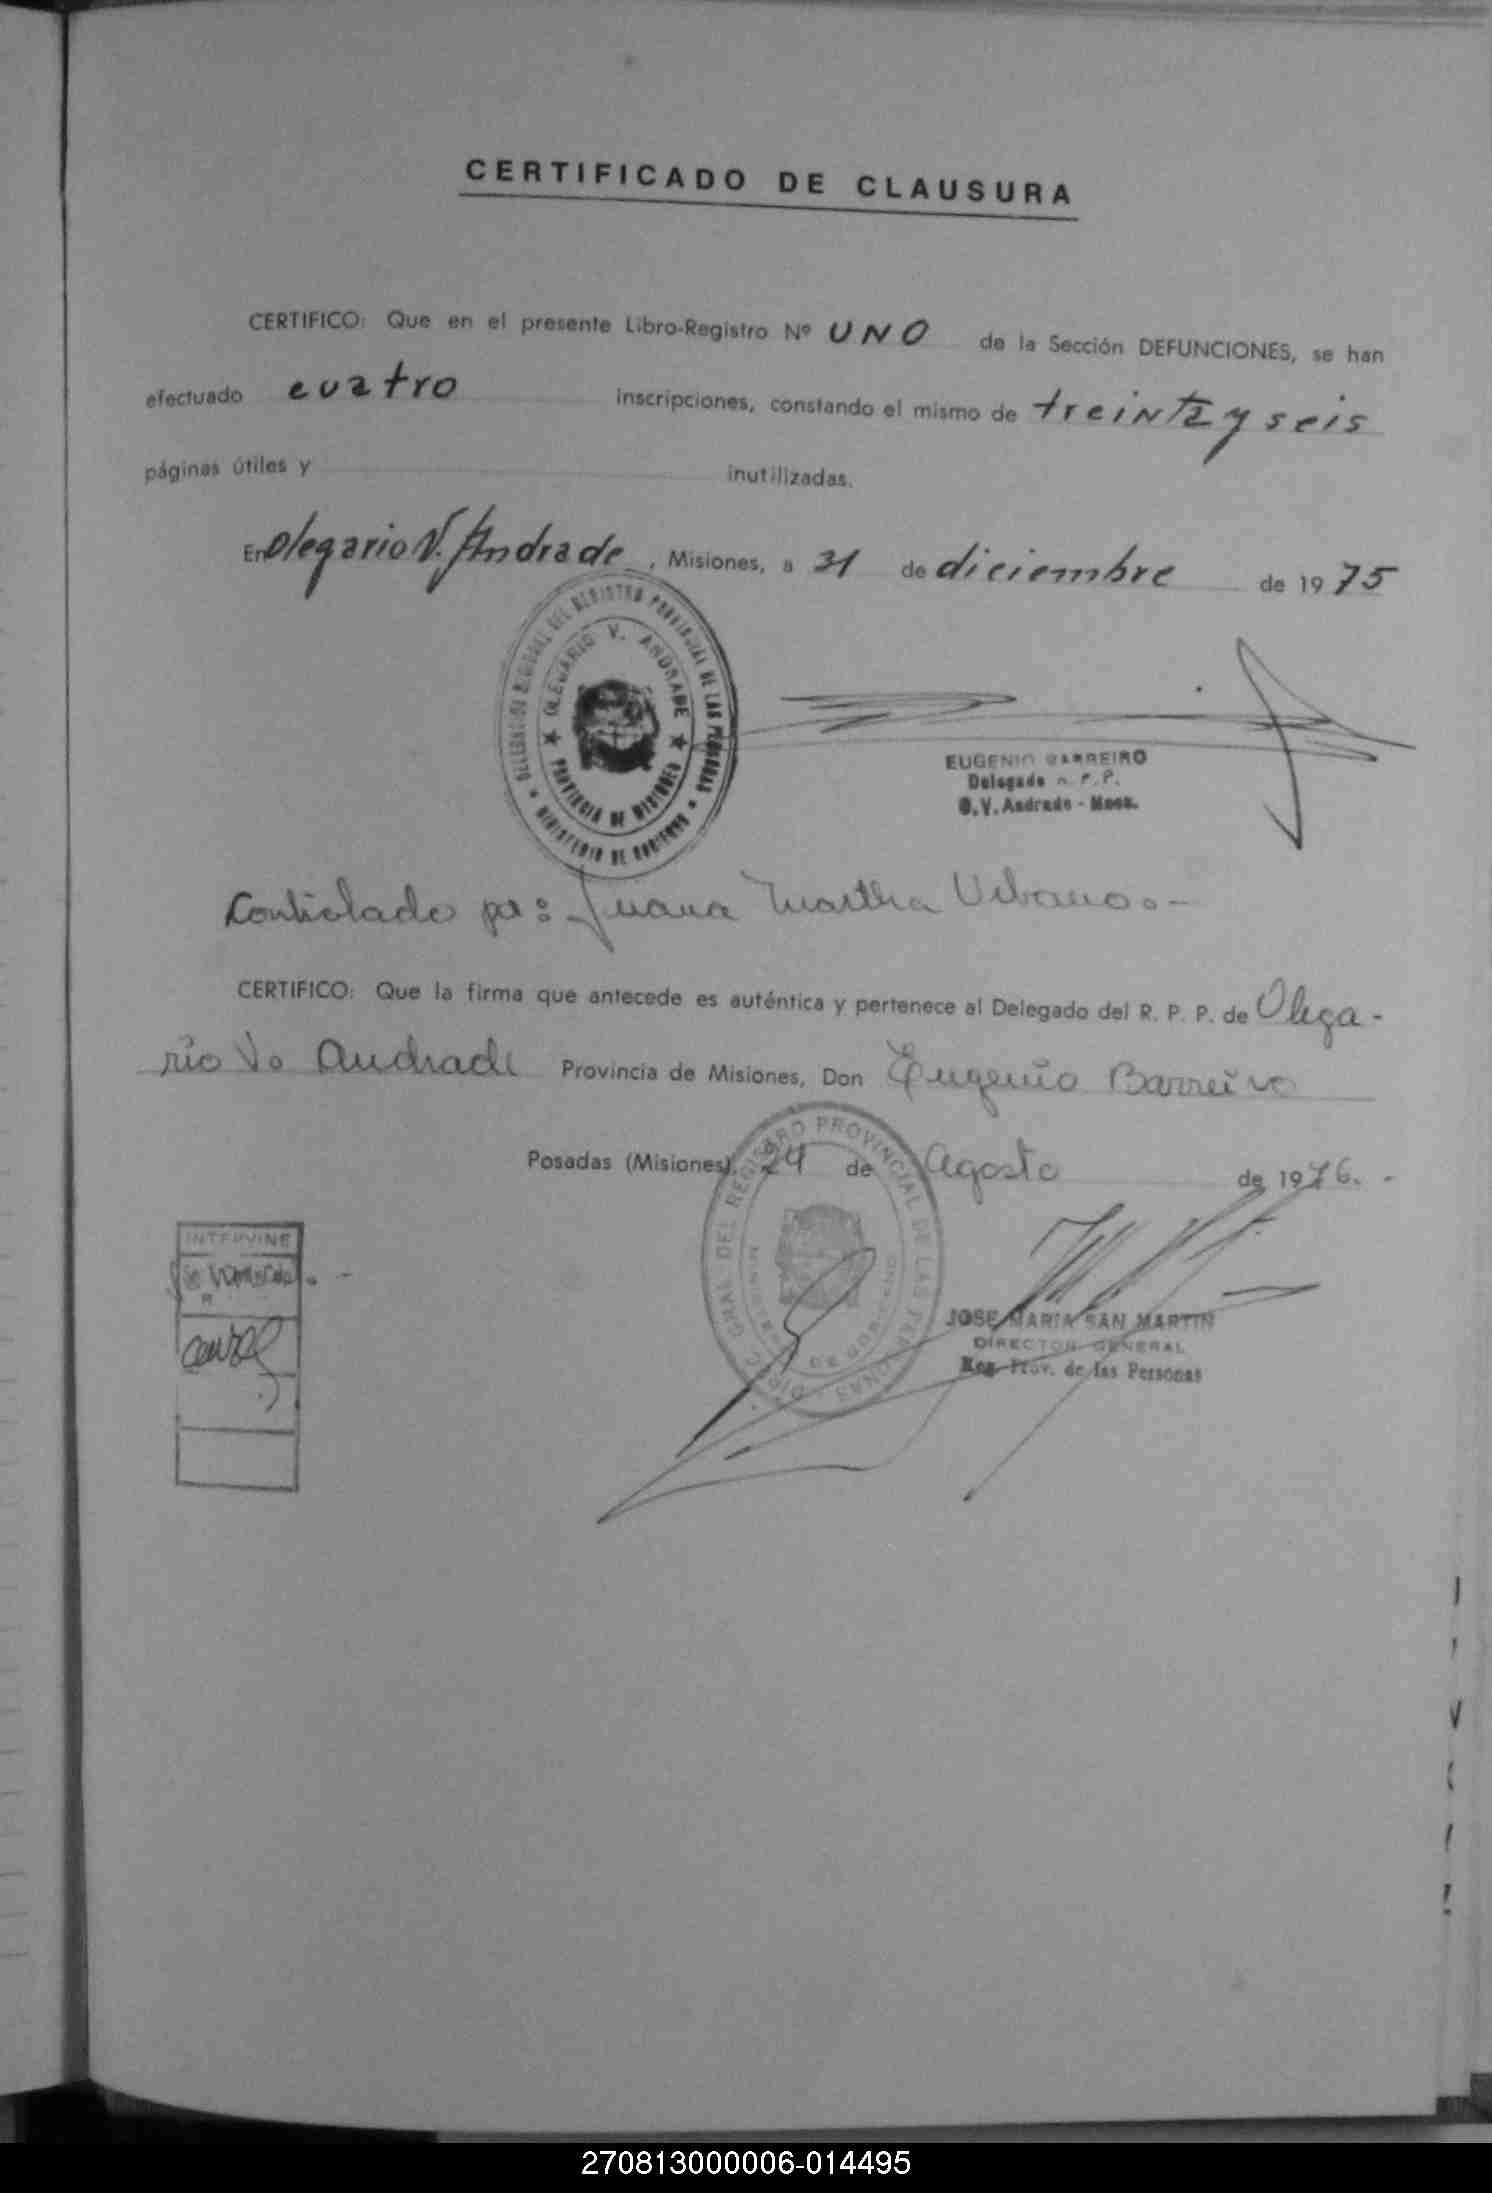 CERTIFICADO DE CLAUSURA
CERTIFICO: Que en el presente Libro-Registro Nº UNO de la Sección DEFUNCIONES, se han
efectuado cuatro inscripciones, constando el mismo de treinta y seis
páginas útiles y inutilizadas.
En Olegario V. Andrade, Misiones, a 31 de diciembre de 1975
DELEGACION REGIONAL DEL REGISTRO PROVINCIAL DE LAS PERSONAS
MINISTERIO DE GOBIERNO
OLEGARIO V. ANDRADE
PROVINCIA DE MISIONES
EUGENIO BARREIRO
Delegado R. P. P.
O. V. Andrade - Mnes.
Controlado por: Juana Martha Urbano.-
CERTIFICO: Que la firma que antecede es auténtica y pertenece al Delegado del R. P. P. de Olega-
rio V. Andrade Provincia de Misiones, Don Eugenio Barreiro
Posadas (Misiones), 24 de Agosto de 1976.-
DIRC. GRAL. DEL REGISTRO PROVINCIAL DE LAS PERSONAS
MINISTERIO DE GOBIERNO
INTERVINE
JOSE MARIA SAN MARTIN
DIRECTOR GENERAL
Reg. Prov. de las Personas
270813000006-014495